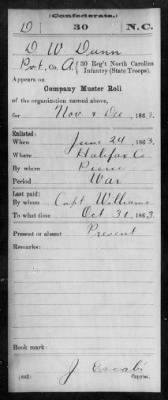 (Confederate.)
D 30 N.C.
D W Dunn
Pvt. Co. A, 30 Reg't North Carolina
Infantry (State Troops).
Appears on
Company Muster Roll
of the organization named above,
for Nov & Dec, 1863.
Enlisted:
When June 24, 1863.
Where Halifax Co
By whom
Period War
Last paid:
By whom Capt Williams
To what time Oct 31, 1863.
Present or absent Present
Remarks:
Book mark:
J.
Copyist.